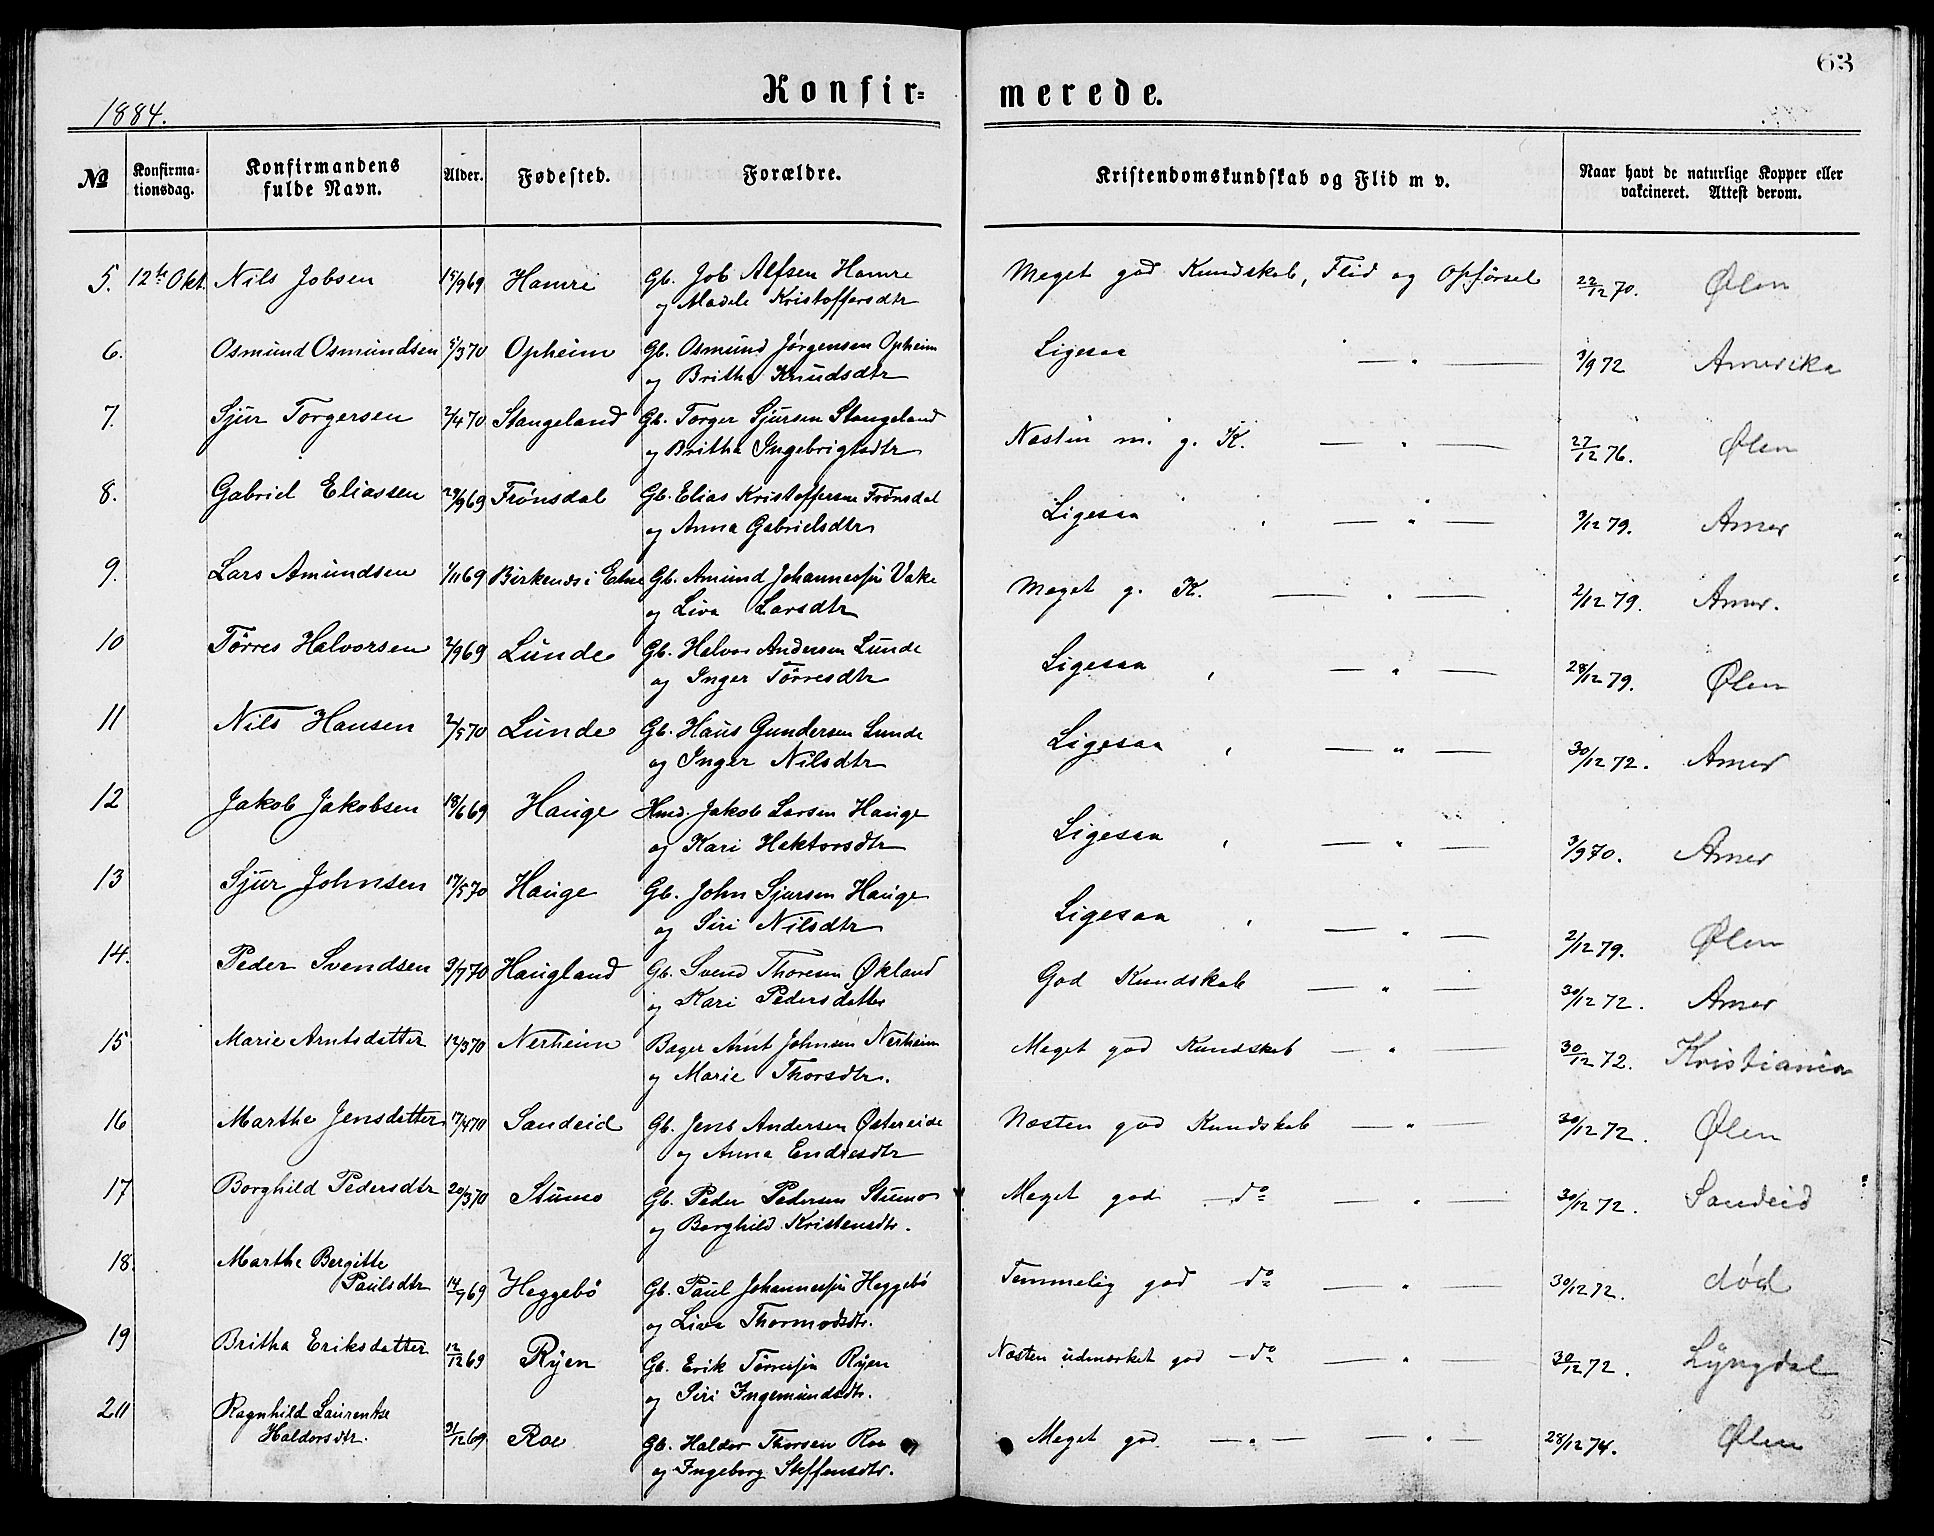 63
Konfir=
merede.
1884.
№
Konfirma-
tionsdag.
Konfirmandens
fulde Navn.
Alder.
Fødested.
Forældre.
Kristendomskundskab og Flid m v.
Naar havt de naturlige Kopper eller
vakcineret. Attest derom.
5. 12te Okt. Nils Jobsen 15/969 Hamre Gb. Job Alfsen Hamre Meget god Kundskab, Flid og Opførsel 22/12 70. Ølen
og Madele Kristoffersdtr
6. Osmund Osmundsen 5/370 Opheim Gb. Osmund Jørgensen Opheim Ligesaa — " — 3/9 72 Amerika
og Britha Knudsdtr
7. Sjur Torgersen 2/470 Stangeland Gb. Torger Sjursen Stangeland Næsten m. g. K. — " — 27/12 76. Ølen
og Britha Ingebrigtsdtr
8. Gabriel Eliassen 29/969 Frønsdal Gb. Elias Kristoffersen Frønsdal Ligesaa — " — 3/12 79. Amer
og Anna Gabrielsdtr
9. Lars Amundsen 1/1169 Birkenæs i Etne Gb. Amund Johannessen Vake Meget g. K. — " — 2/12 79. Amer.
og Liva Larsdtr
10 Tørres Halvorsen 2/969 Lunde Gb. Halvor Andersen Lunde Ligesaa — " — 28/12 79. Ølen
og Inger Tørresdtr
11 Nils Hansen 2/570 Lunde Gb. Hans Gundersen Lunde Ligesaa — " — 30/12 72. Amer
og Inger Nilsdtr
12 Jakob Jakobsen 18/669 Hauge Hmd. Jakob Larsen Hauge Ligesaa — " — 3/970. Amer
og Kari Hektorsdtr
13 Sjur Johnsen 17/570 Hauge Gb. John Sjursen Hauge Ligesaa — " — 2/12 79. Ølen
og Siri Nilsdtr
14. Peder Svendsen 3/770 Haugland Gb. Svend Thoresen Økland God Kundskab — " — 30/12 72. Amer
og Kari Pedersdatter
15 Marie Arntsdatter 12/370 Nerheim Bager Arnt Johnsen Nerheim Meget god Kundskab — " — 30/12 72. Kristiania
og Marie Thorsdtr.
16 Marthe Jensdatter 17/470 Sandeid Gb. Jens Andersen Østereide Næsten god Kundskab — " — 30/12 72. Ølen
og Anna Endresdtr
17 Borghild Pedersdtr 20/370 Stumo Gb. Peder Pedersen Stumo Meget god do — " — 30/12 72. Sandeid
og Borghild Kristensdtr.
18. Marthe Bergitte
Paulsdtr 14/969 Heggebø Gb. Paul Johannessen Heggebø Temmelig god do — " — 30/12 72. død
og Liva Thormodsdtr.
19 Britha Eriksdatter 12/12 69 Ryen Gb. Erik Tørressen Ryen Næsten udmærket god do — " — 30/12 72. Lyngdal
og Siri Ingemundsdtr.
20 Ragnhild Laurentse
Haldorsdtr. 31/12 69 Roe Gb. Haldor Thorsen Roe Meget god — " — — " — 28/12 74. Ølen
og Ingeborg Steffensdtr.